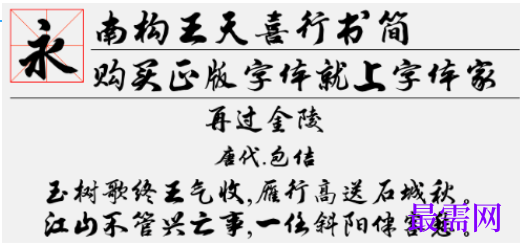 永
南构王天喜行书简
购买正版字体就上字体家
再过金陵
唐代.包佶
玉树歌终王气收,雁行高送石城秋。
江山不管兴亡事,一任斜阳伴客愁。
最需网